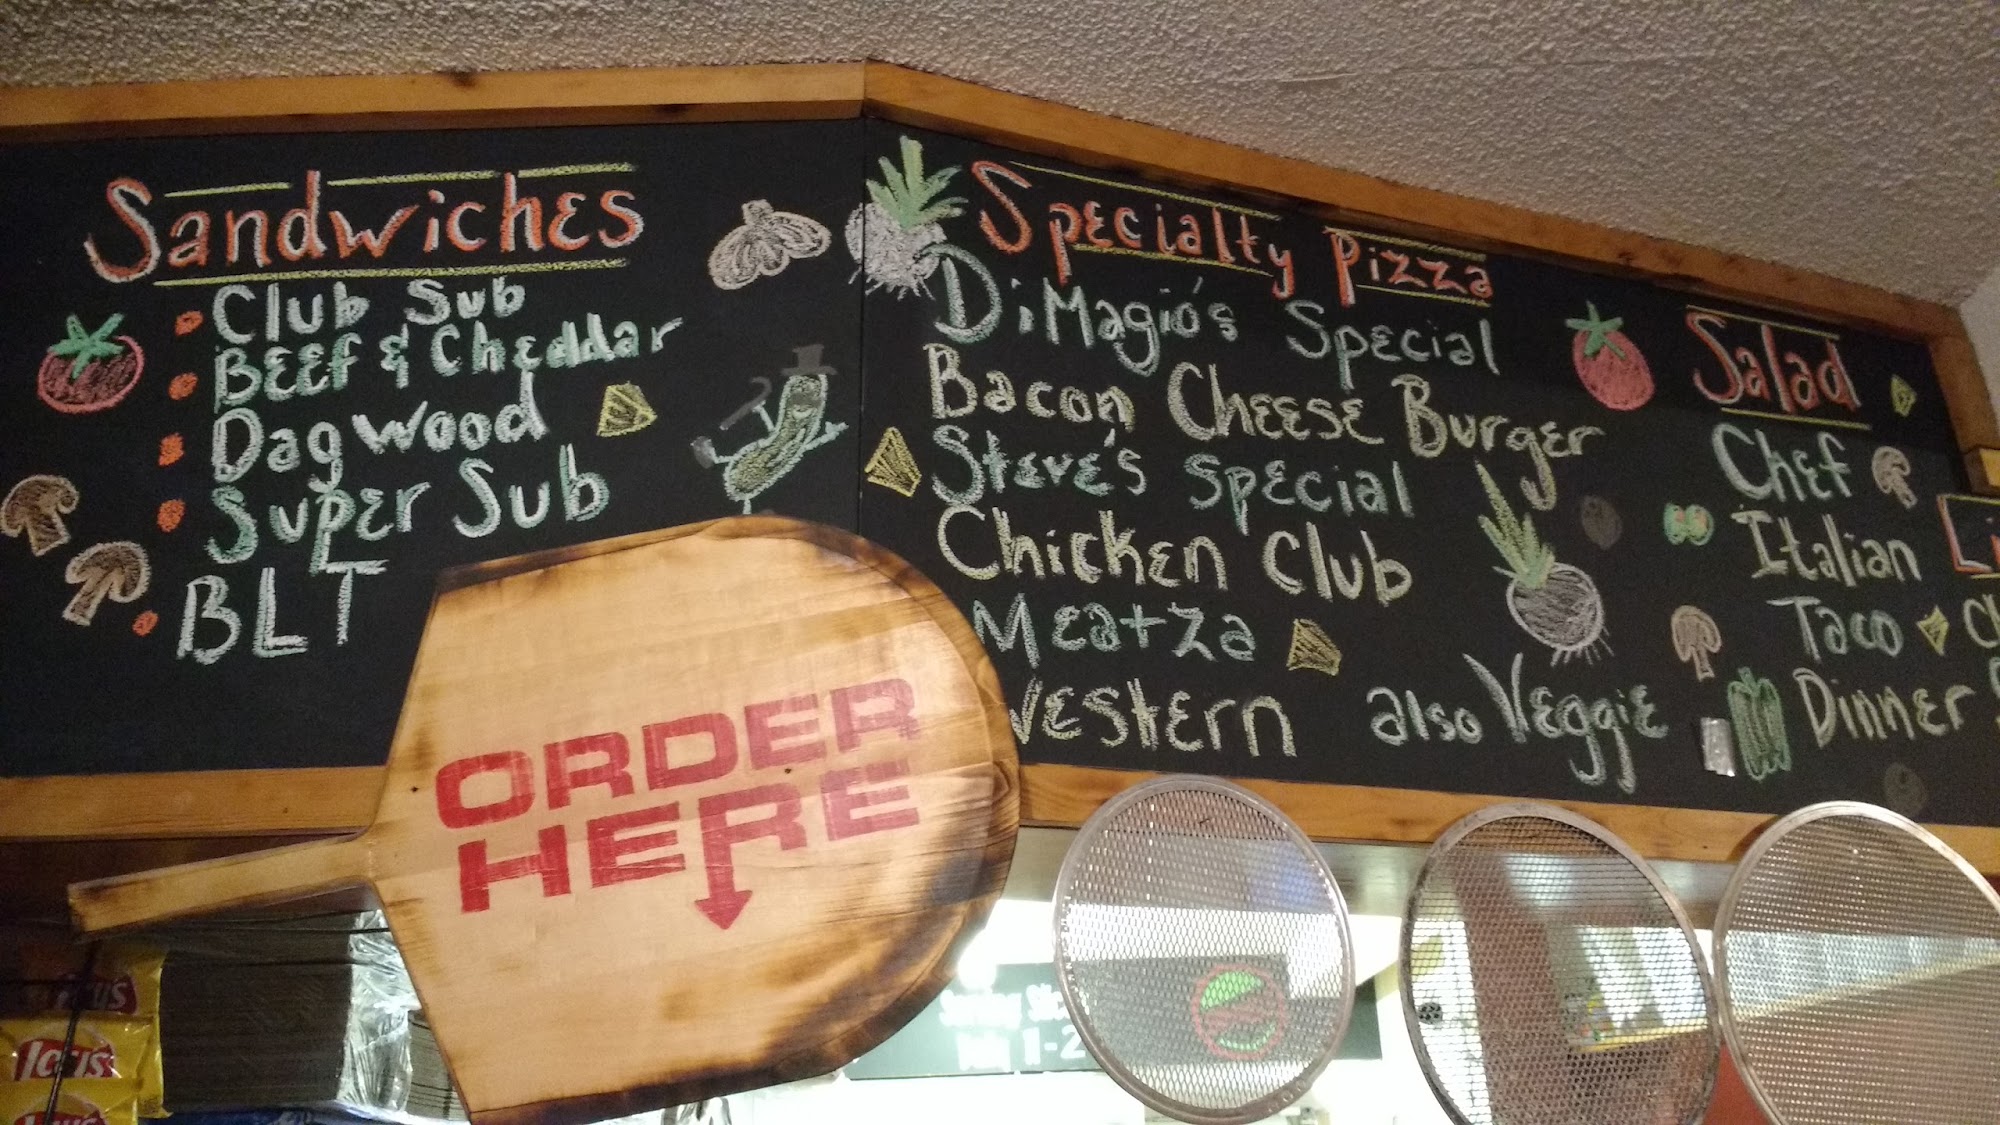 Sandwiches
Club Sub
Beef & Cheddar
Dagwood
Super Sub
BLT
Specialty Pizza
DiMagió's Special
Bacon Cheese Burger
Steve's Special
Chicken Club
Meatza
Western also Veggie
Salad
Chef
Italian
Taco
Dinner
ORDER
HERE
Lay's
1-2